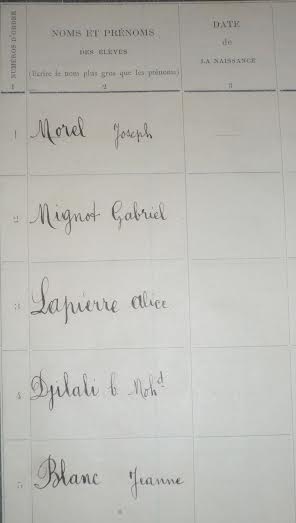 NUMÉROS D'ORDRE
NOMS ET PRÉNOMS
DES ÉLÈVES
(Écrire le nom plus gros que les prénoms)
DATE
de
LA NAISSANCE
1 2 3
1 Morel Joseph
2 Mignot Gabriel
3 Lapierre Alice
4 Djilali b Mohd
5 Blanc Jeanne